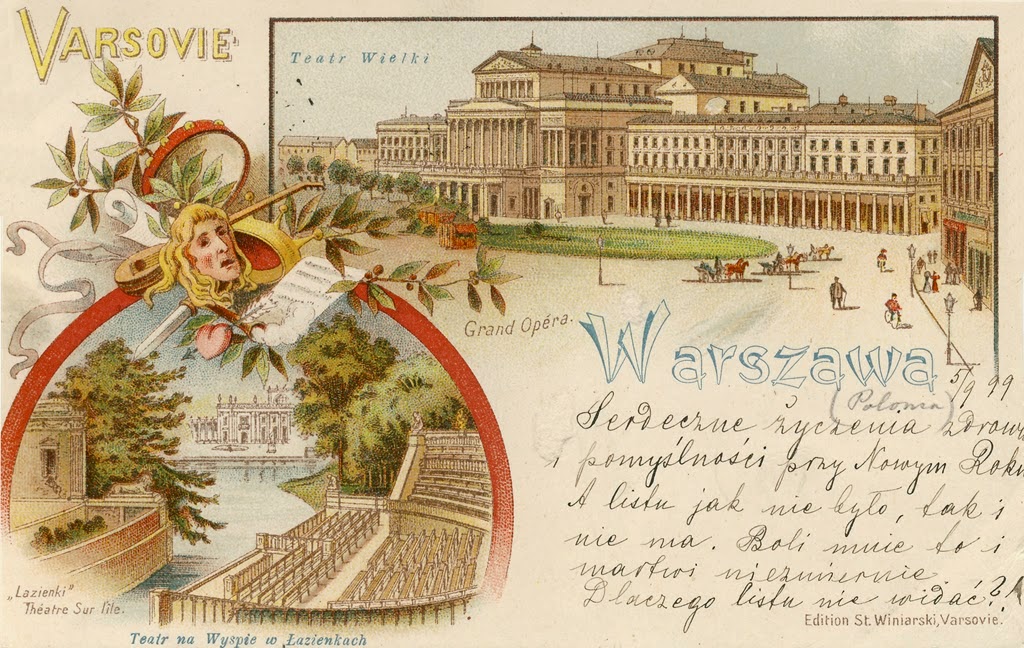 VARSOVIE
Teatr Wielki
Grand Opéra.
WARSZAWA
5/9 99
(Polonia)
Serdeczne życzenia zdrowia
i pomyślności przy Nowym Roku
A listu jak nie było, tak i
nie ma. Boli mnie to i
martwi niezmiernie.
Dlaczego listu nie widać?
Edition St. Winiarski, Varsovie.
„Lazienki"
Théatre Sur l'île.
Teatr na Wyspie w Łazienkach